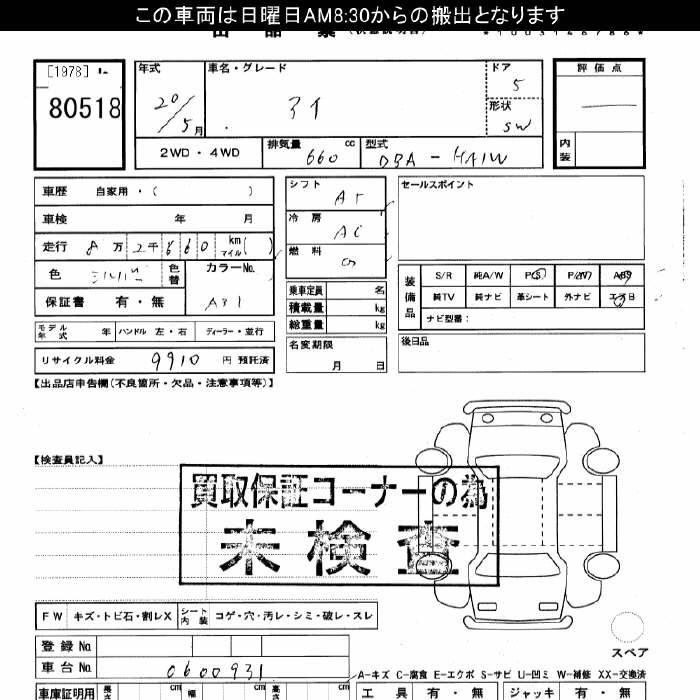 この車両は日曜日AM8:30からの搬出となります
[1978]
80518
年式
20/5月
車名・グレード
アイ
ドア
5
形状
SW
評価点
内装
2WD・4WD
排気量 660 cc
型式 DBA-HA1W
車歴 自家用・( )
車検 年 月
走行 8万2千660 km マイル( )
色 シルバー 色替
カラーNo. A31
保証書 有・無
シフト AT
冷房 AC
燃料
乗車定員 名
積載量 kg
総重量 kg
名変期限 月 日
セールスポイント
装備品
S/R 純A/W P(S) P/W AB
純TV 純ナビ 革シート 外ナビ エアB
ナビ型番:
後日品
モデル年式 年 ハンドル 左・右 ディーラー・並行
リサイクル料金 9910 円 預託済
【出品店申告欄(不良箇所・欠品・注意事項等)】
【検査員記入】
買取保証コーナーの為
未検査
FW キズ・トビ石・割レX シート内装 コゲ・穴・汚レ・シミ・破レ・スレ
スペア
登録No.
車台No. 0600931
A-キズ C-腐食 E-エクボ S-サビ U-凹ミ W-補修 XX-交換済
車庫証明用 長さ cm 幅 cm 高さ cm
工具 有・無 ジャッキ 有・無